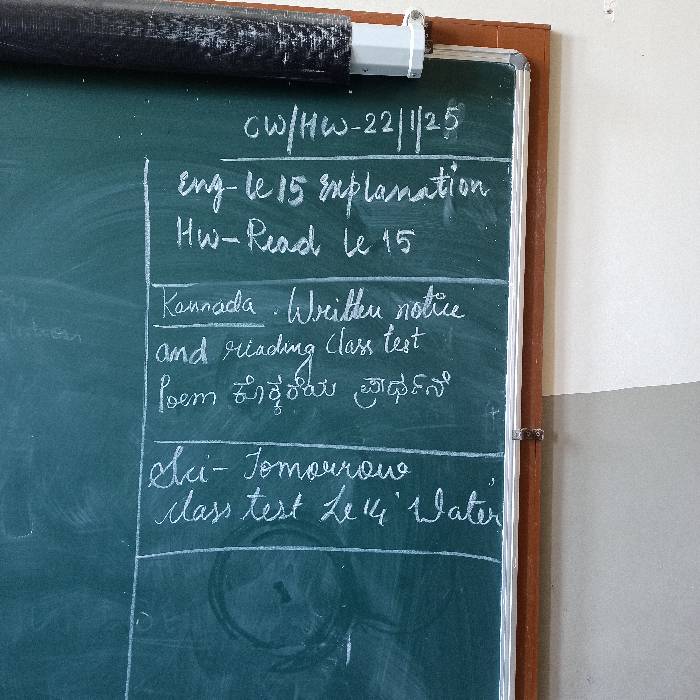 CW/HW-22/1/25
Eng-le 15 Explanation
HW-Read le 15
Kannada. Written notice
and reading class test
Poem ಕೊಕ್ಕರೆಯ ಪ್ರಾರ್ಥನೆ
Sci-Tomorrow
class test Le 14 'Water'